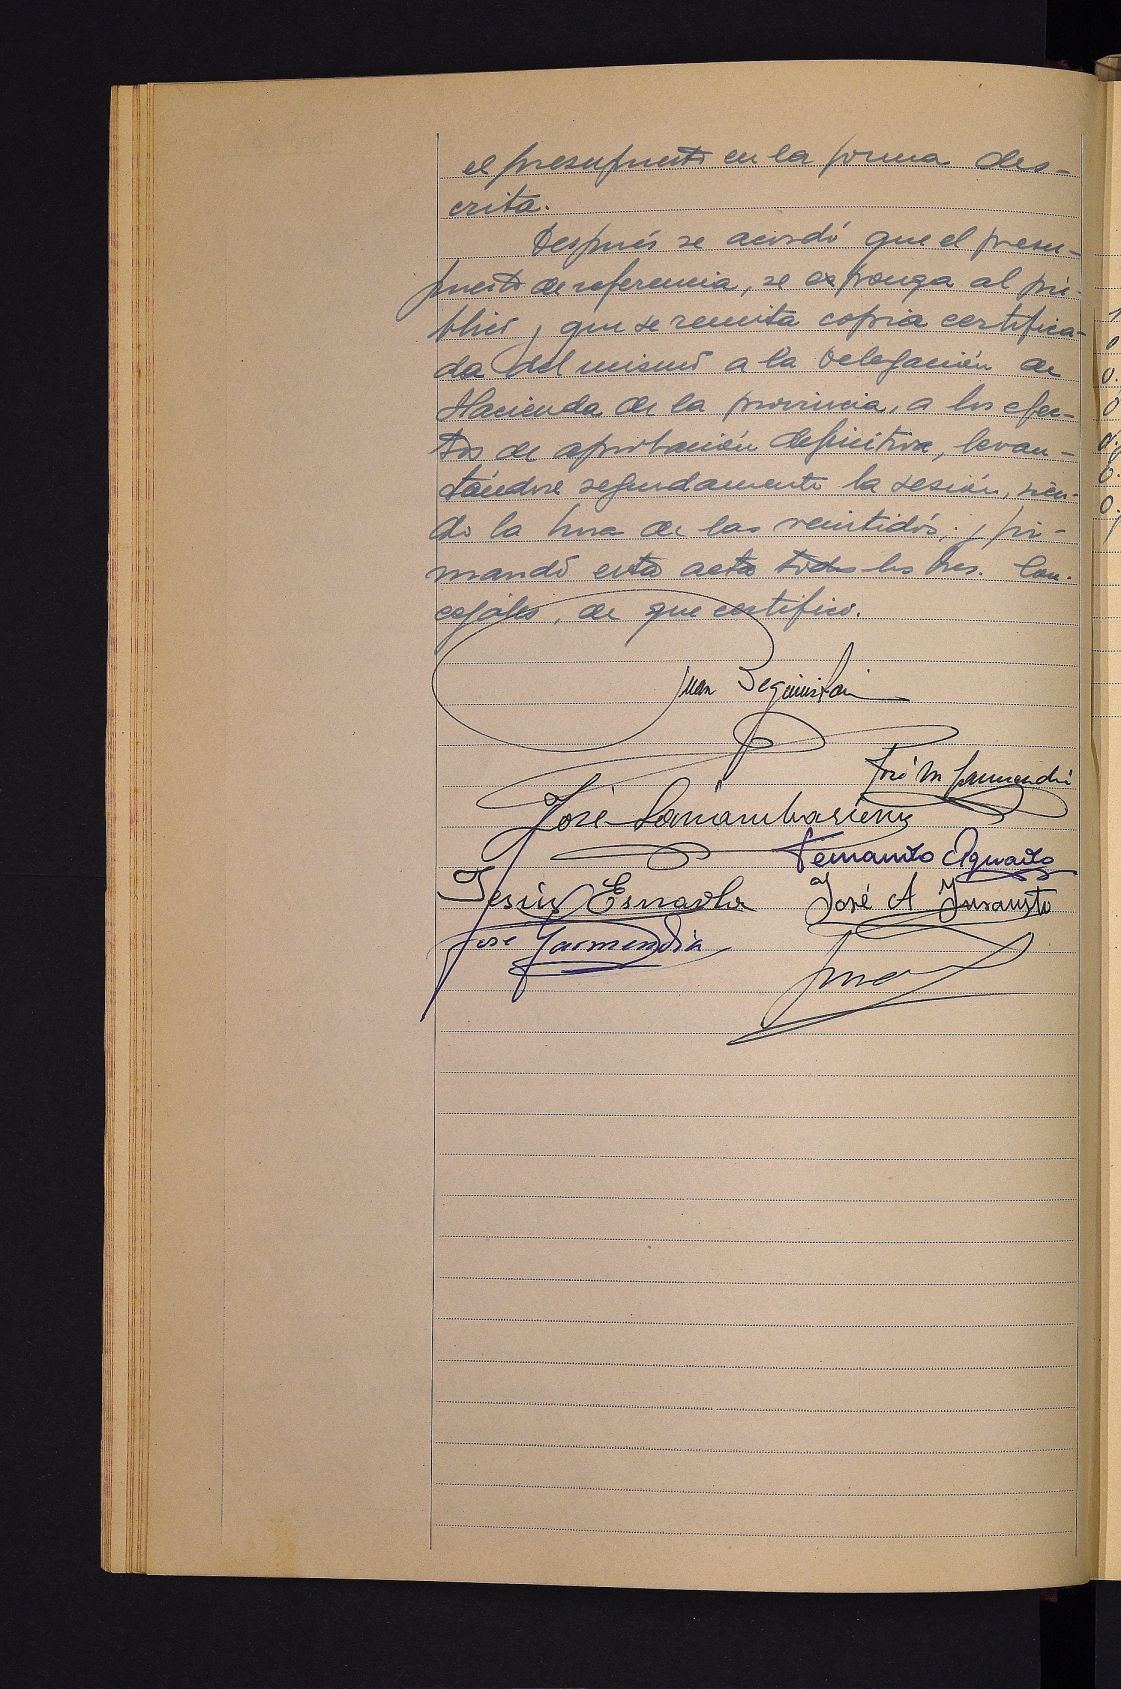 el presupuesto en la forma des-
crita.
Después se acordó que el presu-
puesto de referencia, se exponga al pú-
blico y que se remita copia certifica-
da del mismo a la Delegación de
Hacienda de la provincia, a los efec-
tos de aprobación definitiva, levan-
tándose seguidamente la sesión, sien-
do la hora de las veintidós; y fir-
mando esta acta todos los Sres. Con-
cejales, de que certifico.
Juan Beguiristain
José M Garmendia
José
Fernando
Jesús Esnaola José A
José Garmendia